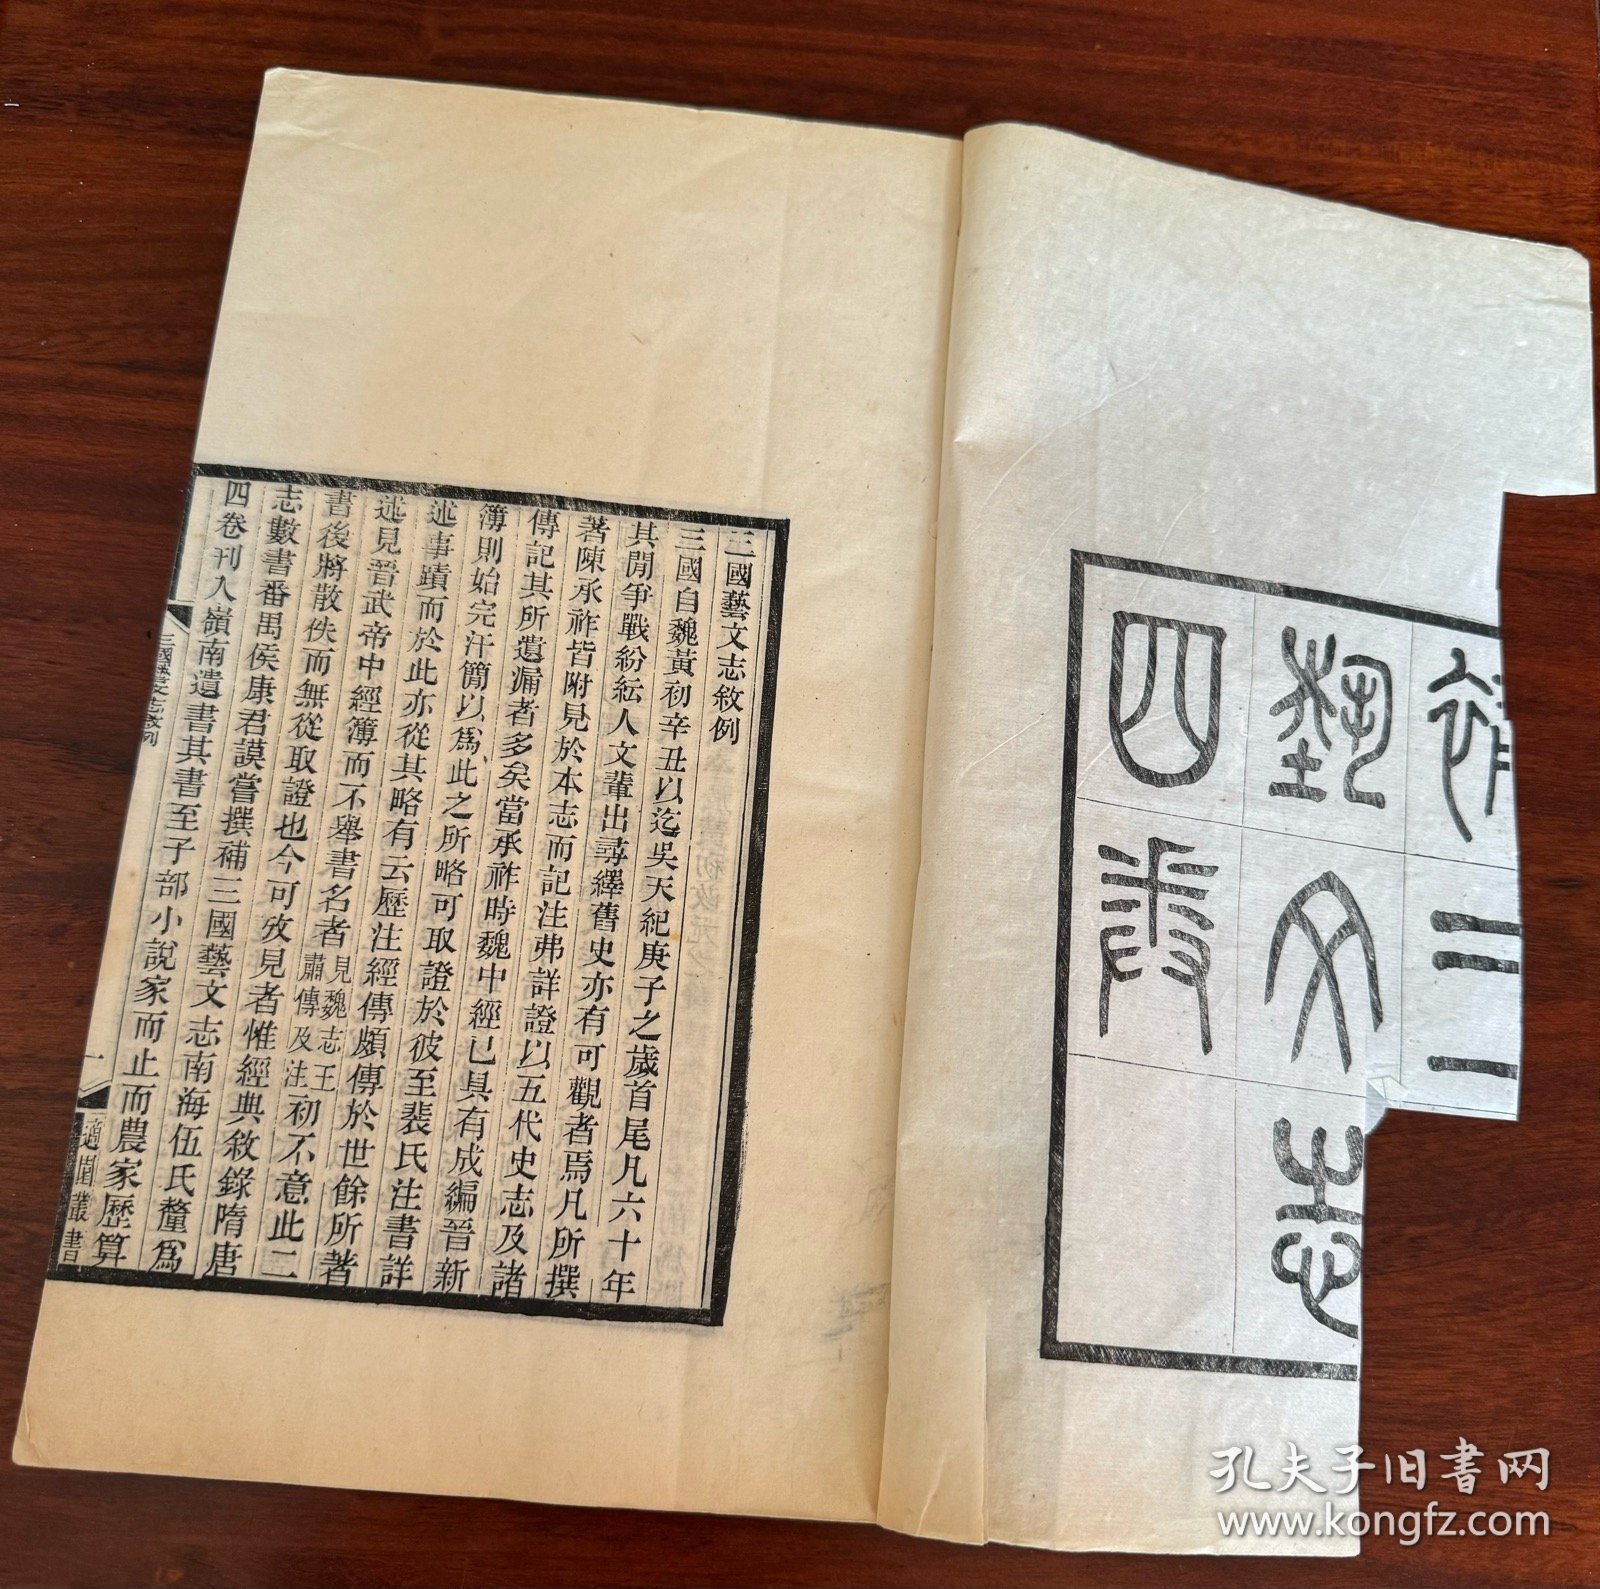 補三
藝文志
四卷
三國藝文志敘例
三國自魏黃初辛丑以迄吳天紀庚子之歲首尾凡六十年
其閒爭戰紛紜人文輩出尋繹舊史亦有可觀者焉凡所撰
著陳承祚皆附見於本志而記注弗詳證以五代史志及諸
傳記其所遺漏者多矣當承祚時魏中經已具有成編晉新
簿則始完汗簡以為此之所略可取證於彼至裴氏注書詳
述事蹟而於此亦從其略有云歷注經傳頗傳於世餘所著
述見晉武帝中經簿而不舉書名者見魏志王肅傳及注初不意此二
書後將散佚而無從取證也今可攷見者惟經典敘錄隋唐
志數書番禺侯康君謨嘗撰補三國藝文志南海伍氏釐爲
四卷刊入嶺南遺書其書至子部小說家而止而農家歷算
三國藝文志敘例
一
適園叢書
孔夫子旧书网
www.kongfz.com